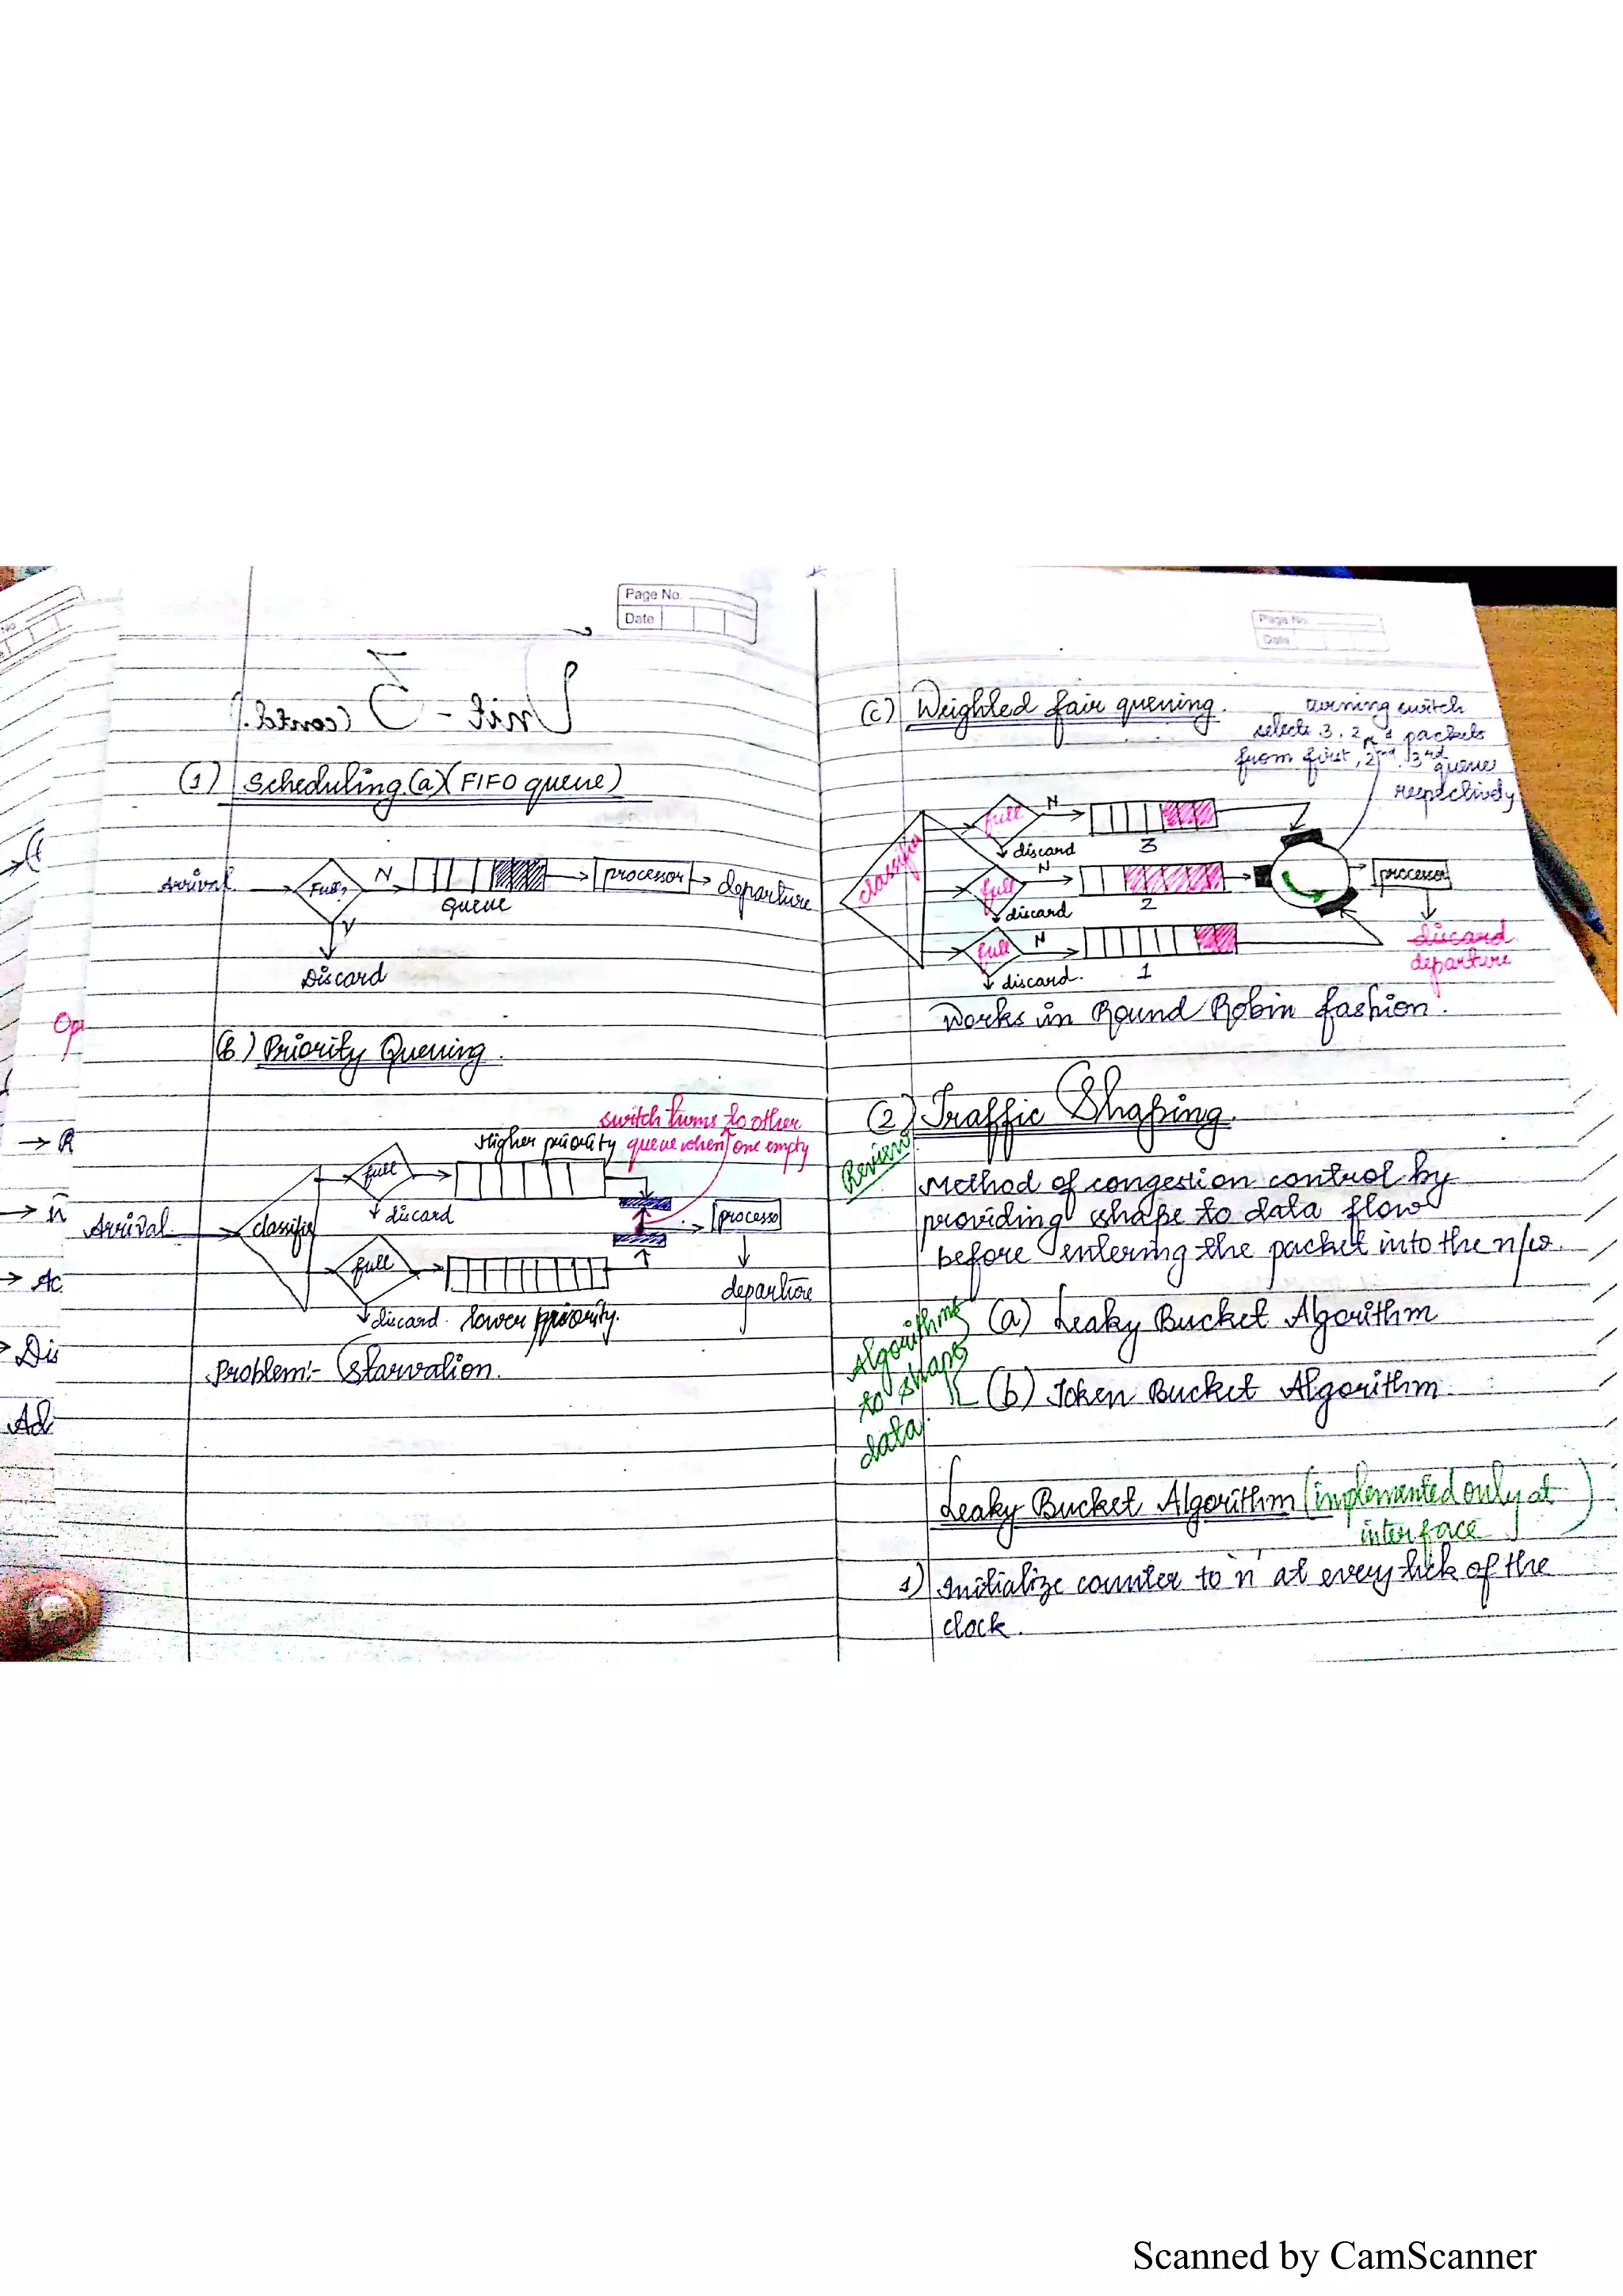 Page No.
Date
Unit - 5 (contd.)
(1) Scheduling (a) (FIFO queue)
Arrival
Full?
N
queue
processor
departure
Y
Discard
(b) Priority Queuing.
switch turns to other
Higher priority queue when one empty
full
discard
Arrival
classifie
processo
full
discard. lower priority.
departure
Problem:- Starvation.
Op
→ R
→ Ac
→ Dis
Ad
Page No.
Date
(c) Weighted fair queuing.
turning switch
selects 3, 2 packets
from first, 2nd, 3rd queue
respectively
classifier
full
N
discard
3
full
N
discard
2
full
N
discard.
1
processor
discard
departure
Works in Round Robin fashion.
(2) Traffic Shaping.
Review
Method of congestion control by
providing shape to data flow
before entering the packet into the n/w.
Algorithms
to shape
data.
(a) Leaky Bucket Algorithm
(b) Token Bucket Algorithm
Leaky Bucket Algorithm (implemented only at
interface)
1) Initialize counter to 'n' at every tick of the
clock.
Scanned by CamScanner